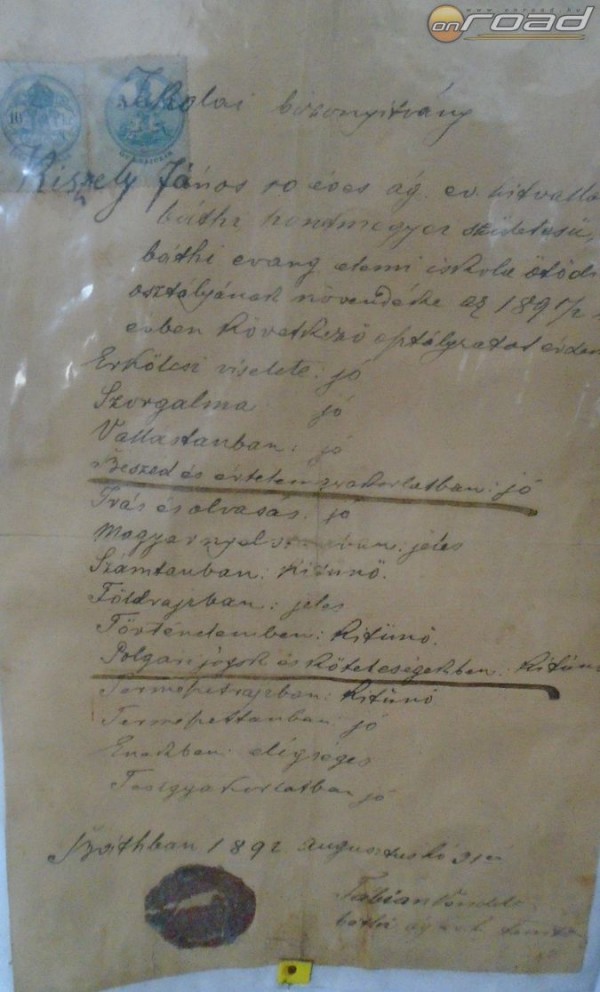 www.onroad.hu
onroad
Iskolai bizonyitvány
10
5
Kiszely János 10 éves ág. ev. hitvallá
báthi hontmegyei születésü,
báthi evang. elemi iskola ötödi
osztályának növendéke az 1891/2
évben következö osztályzatot érdem
Erkölcsi viselete: jó
Szorgalma jó
Vallástanban: jó
Beszéd és értelemgyakorlatban: jó
Irás és olvasás: jó
Magyar nyelv jeles
Számtanban: kitünö.
Földrajzban: jeles
Történelemben: kitünö.
Polgári jogok és kötelességekben: kitün
Természetrajzban: kitünö
Természettanban: jó
Énekben: elégséges
Testgyakorlatban jó
Báthban 1892 augusztus hó 31én
Fábián
báthi ág. tanító